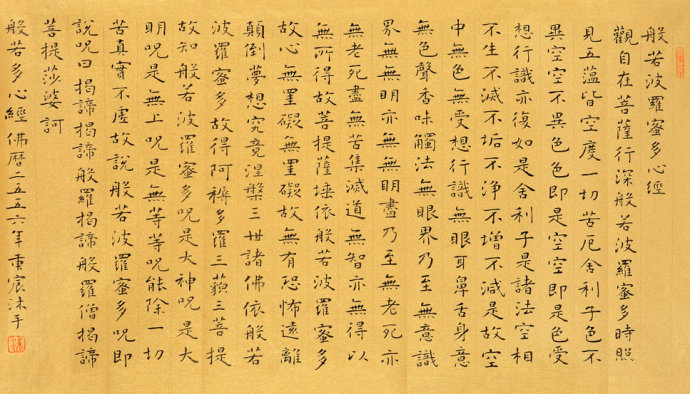 般若波羅蜜多心經
觀自在菩薩行深般若波羅蜜多時照
見五蘊皆空度一切苦厄舍利子色不
異空空不異色色即是空空即是色受
想行識亦復如是舍利子是諸法空相
不生不滅不垢不淨不增不減是故空
中無色無受想行識無眼耳鼻舌身意
無色聲香味觸法無眼界乃至無意識
界無無明亦無無明盡乃至無老死亦
無老死盡無苦集滅道無智亦無得以
無所得故菩提薩埵依般若波羅蜜多
故心無罣礙無罣礙故無有恐怖遠離
顛倒夢想究竟涅槃三世諸佛依般若
波羅蜜多故得阿耨多羅三藐三菩提
故知般若波羅蜜多呪是大神呪是大
明呪是無上呪是無等等呪能除一切
苦真實不虛故說般若波羅蜜多呪即
說呪曰揭諦揭諦般羅揭諦般羅僧揭諦
菩提莎婆訶
般若多心經佛曆二五五六年東宸沐手